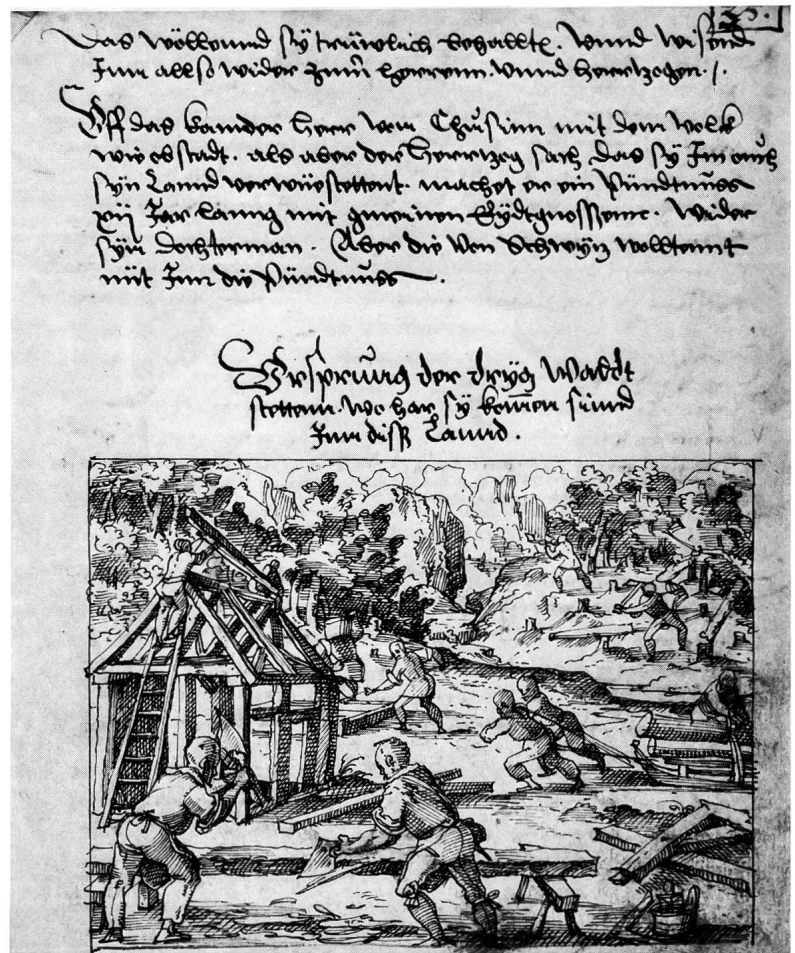 Das wöllennd sÿ trüwlich behallte. Unnd wisend
Inn allso wider zum herrenn unnd herrtzogen.
Uff das kam der herr vonn Chüssinn mit dem volck
wie obstadt. als aber der herrtzog sach das sÿ Im ouch
sÿn Lannd verwüestettent. machet er ein Pündtnuss
xij Jar lanng mit gmeinen Eÿdtgnossenn. Wider
sÿn dochterman. Aber die von Schwÿtz wolltennt
nüt Inn die Pündtnuss.
Ursprung der drÿg Waldt
stettenn. wo har sÿ komen sinnd
Inn diss Lannd.